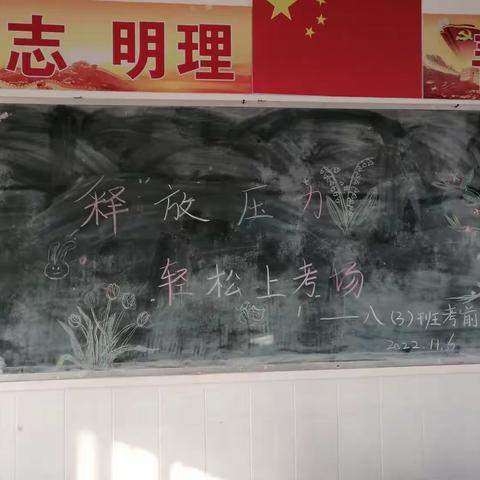 志 明理
释放压力
轻松上考场
——八(3)班考前
2022.11.6